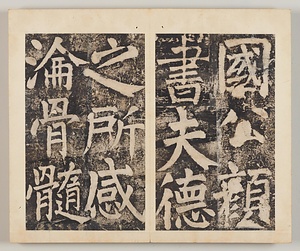 國公顏
書夫德
之所感
淪骨髓